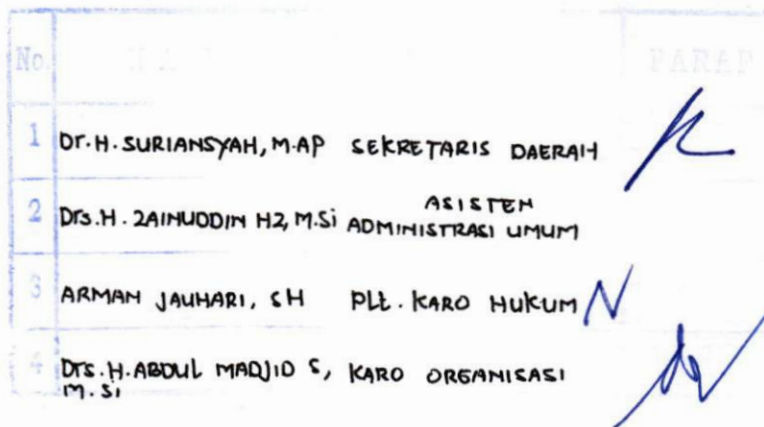 No. PARAP
1 Dr. H. SURIANSYAH, M.AP SEKRETARIS DAERAH
2 Drs. H. ZAINUDDIN HZ, M.Si ASISTEN ADMINISTRASI UMUM
3 ARMAN JAUHARI, SH PLt. KARO HUKUM
4 Drs. H. ABDUL MADJID S, M.Si KARO ORGANISASI